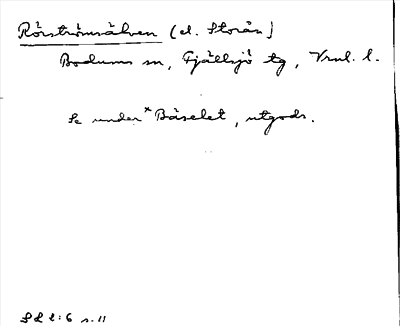 Rörströmsälven (el. Storån)
Bodums sn, Fjällsjö tg, Vrnl. l.
Se under *Bäselet, utgods.
S L l:6 s. 11